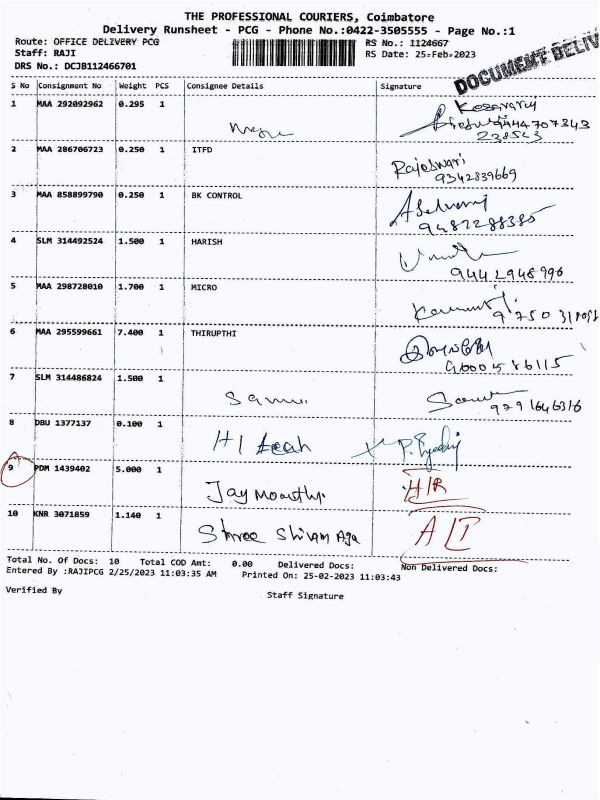 THE PROFESSIONAL COURIERS, Coimbatore
Delivery Runsheet - PCG - Phone No.:0422-3505555 - Page No.:1
Route: OFFICE DELIVERY PCG RS No.: 1124667
Staff: RAJI RS Date: 25-Feb-2023
DRS No.: DCJB112466701
DOCUMENT DELIV
S No Consignment No Weight PCS Consignee Details Signature
1 MAA 292092962 0.295 1
9444707343
238523
2 MAA 286706723 0.250 1 ITFD Rajeswari
9342839669
3 MAA 858899790 0.250 1 BK CONTROL
9487288385
4 SLM 314492524 1.500 1 HARISH
9442948996
5 MAA 298728010 1.700 1 MICRO
6 MAA 295599661 7.400 1 THIRUPTHI
96000586115
7 SLM 314486824 1.500 1
9791646316
8 DBU 1377137 0.100 1 HI
9 PDM 1439402 5.000 1 Jay Moorthy H/R
10 KNR 3071859 1.140 1 Shree Shivam Aga A/T
Total No. Of Docs: 10 Total COD Amt: 0.00 Delivered Docs: Non Delivered Docs:
Entered By :RAJIPCG 2/25/2023 11:03:35 AM Printed On: 25-02-2023 11:03:43
Verified By Staff Signature